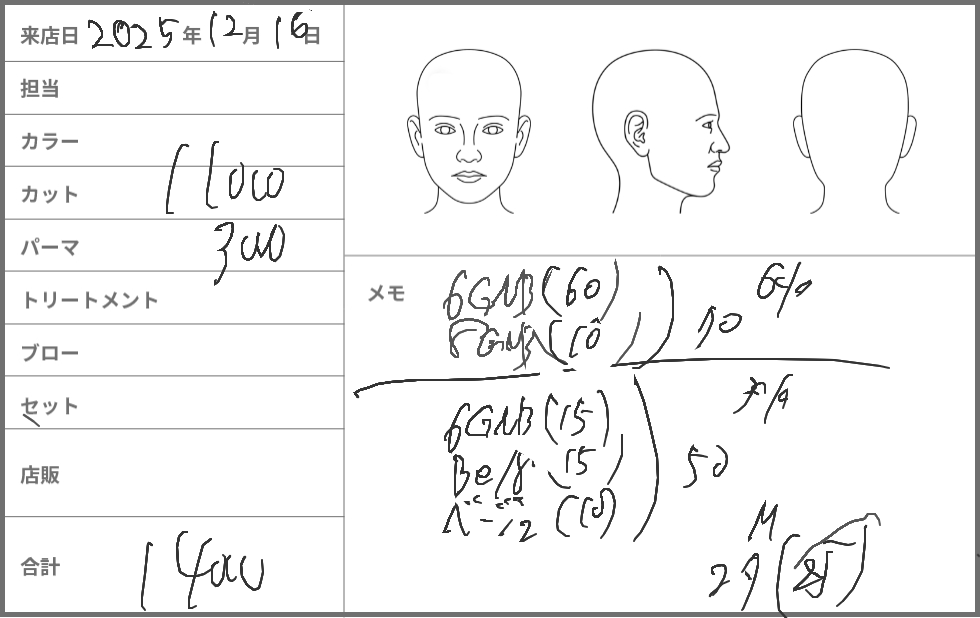 来店日 2025年12月16日
担当
カラー
カット 11000
パーマ 3000
トリートメント
ブロー
セット
店販
合計 14000
メモ
6GNB(60)
8GNB(10)
70
6%
6GNB(15)
Be/8 (15)
(10)
50
M
29